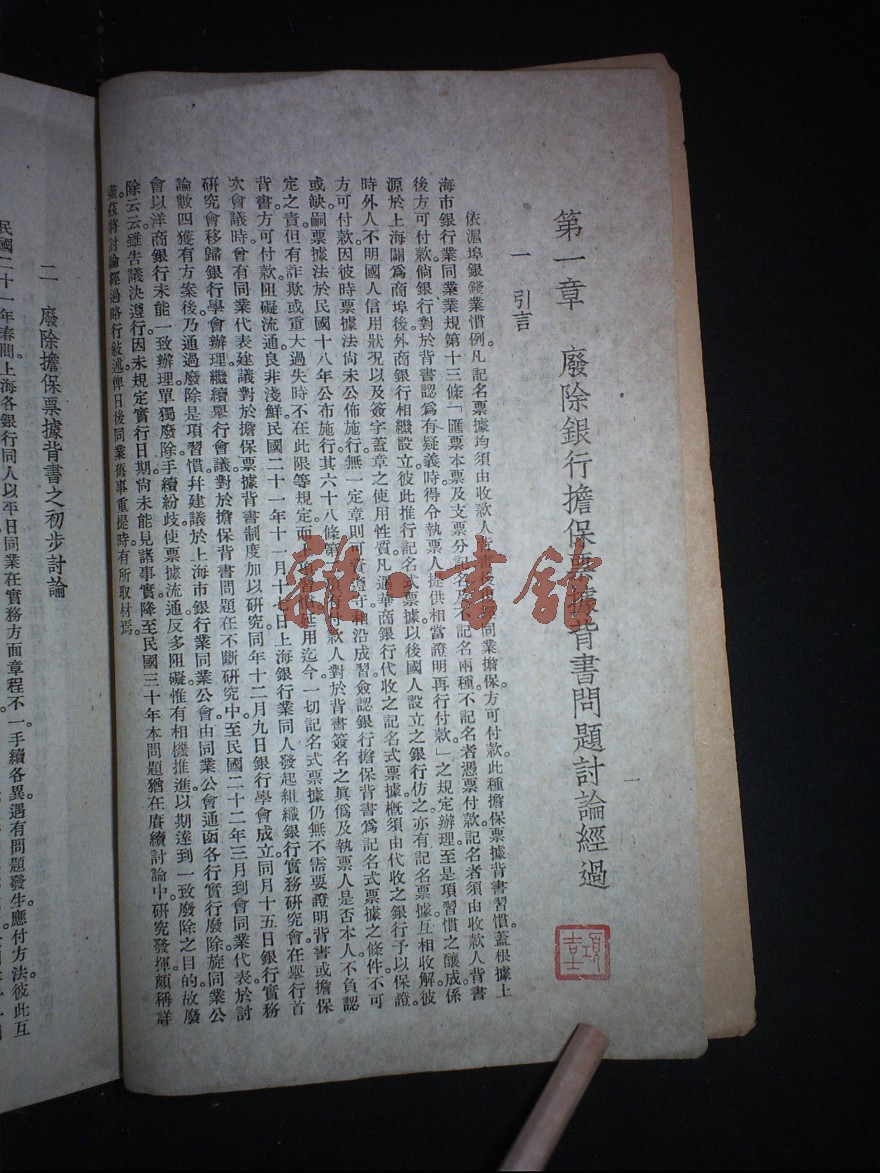 一
第一章 廢除銀行擔保票據背書問題討論經過
一 引言
依滬埠銀錢業慣例凡記名票據均須由收款人背書後同業擔保方可付款此種擔保票據背書習慣蓋根據上
海市銀行業同業業規第十三條「匯票本票及支票分記名及不記名兩種不記名者憑票付款記名者須由收款人背書
後方可付款倘銀行對於背書認爲有疑義時得令執票人提供相當證明再行付款」之規定辦理至是項習慣之釀成係
源於上海闢爲商埠後外商銀行相繼設立彼此推行記名式票據以後國人設立之銀行仿之亦有記名票據互相收解彼
時外人不明國人信用狀況以及簽字蓋章之使用性質凡遇華商銀行代收之記名式票據槪須由代收之銀行予以保證。
方可付款因彼時票據法尙未公佈施行無一定章則可資遵守相沿成習僉認銀行擔保背書爲記名式票據之條件不可
或缺嗣票據法於民國十八年公布施行其六十八條第 付款人對於背書簽名之眞僞及執票人是否本人不負認
定之責但有詐欺或重大過失時不在此限等規定而 延用迄今一切記名式票據仍無不需要證明背書或擔保
背書方可付款阻礙流通良非淺鮮民國二十一年十一月十七日上海銀行業同人發起組織銀行實務研究會在舉行首
次會議時曾有同業代表建議對於擔保票據背書制度加以研究同年十二月九日銀行學會成立同月十五日銀行實務
研究會移歸銀行學會辦理繼續舉行會議對於擔保背書問題在不斷研究中至民國二十二年三月到會同業代表於討
論數四獲有方案後乃通過廢除是項習慣幷建議於上海市銀行業同業公會由同業公會通函各行實行廢除旋同業公
會以洋商銀行未能一致辦理單獨廢除手續紛歧使票據流通反多阻礙惟有相機推進以期達到一致廢除之目的故廢
除云云雖告議決遵行因未規定實行日期尙未能見諸事實降至民國三十年本問題猶在賡續討論中。研究發揮頗稱詳
盡茲將討論經過略行敍述俾日後同業舊事重提時有所取材焉。
二 廢除擔保票據背書之初步討論
民國二十一年春間上海各銀行同人以平日同業在實務方面章程不一手續各異遇有問題發生應付方法彼此互
項士
雜·書館